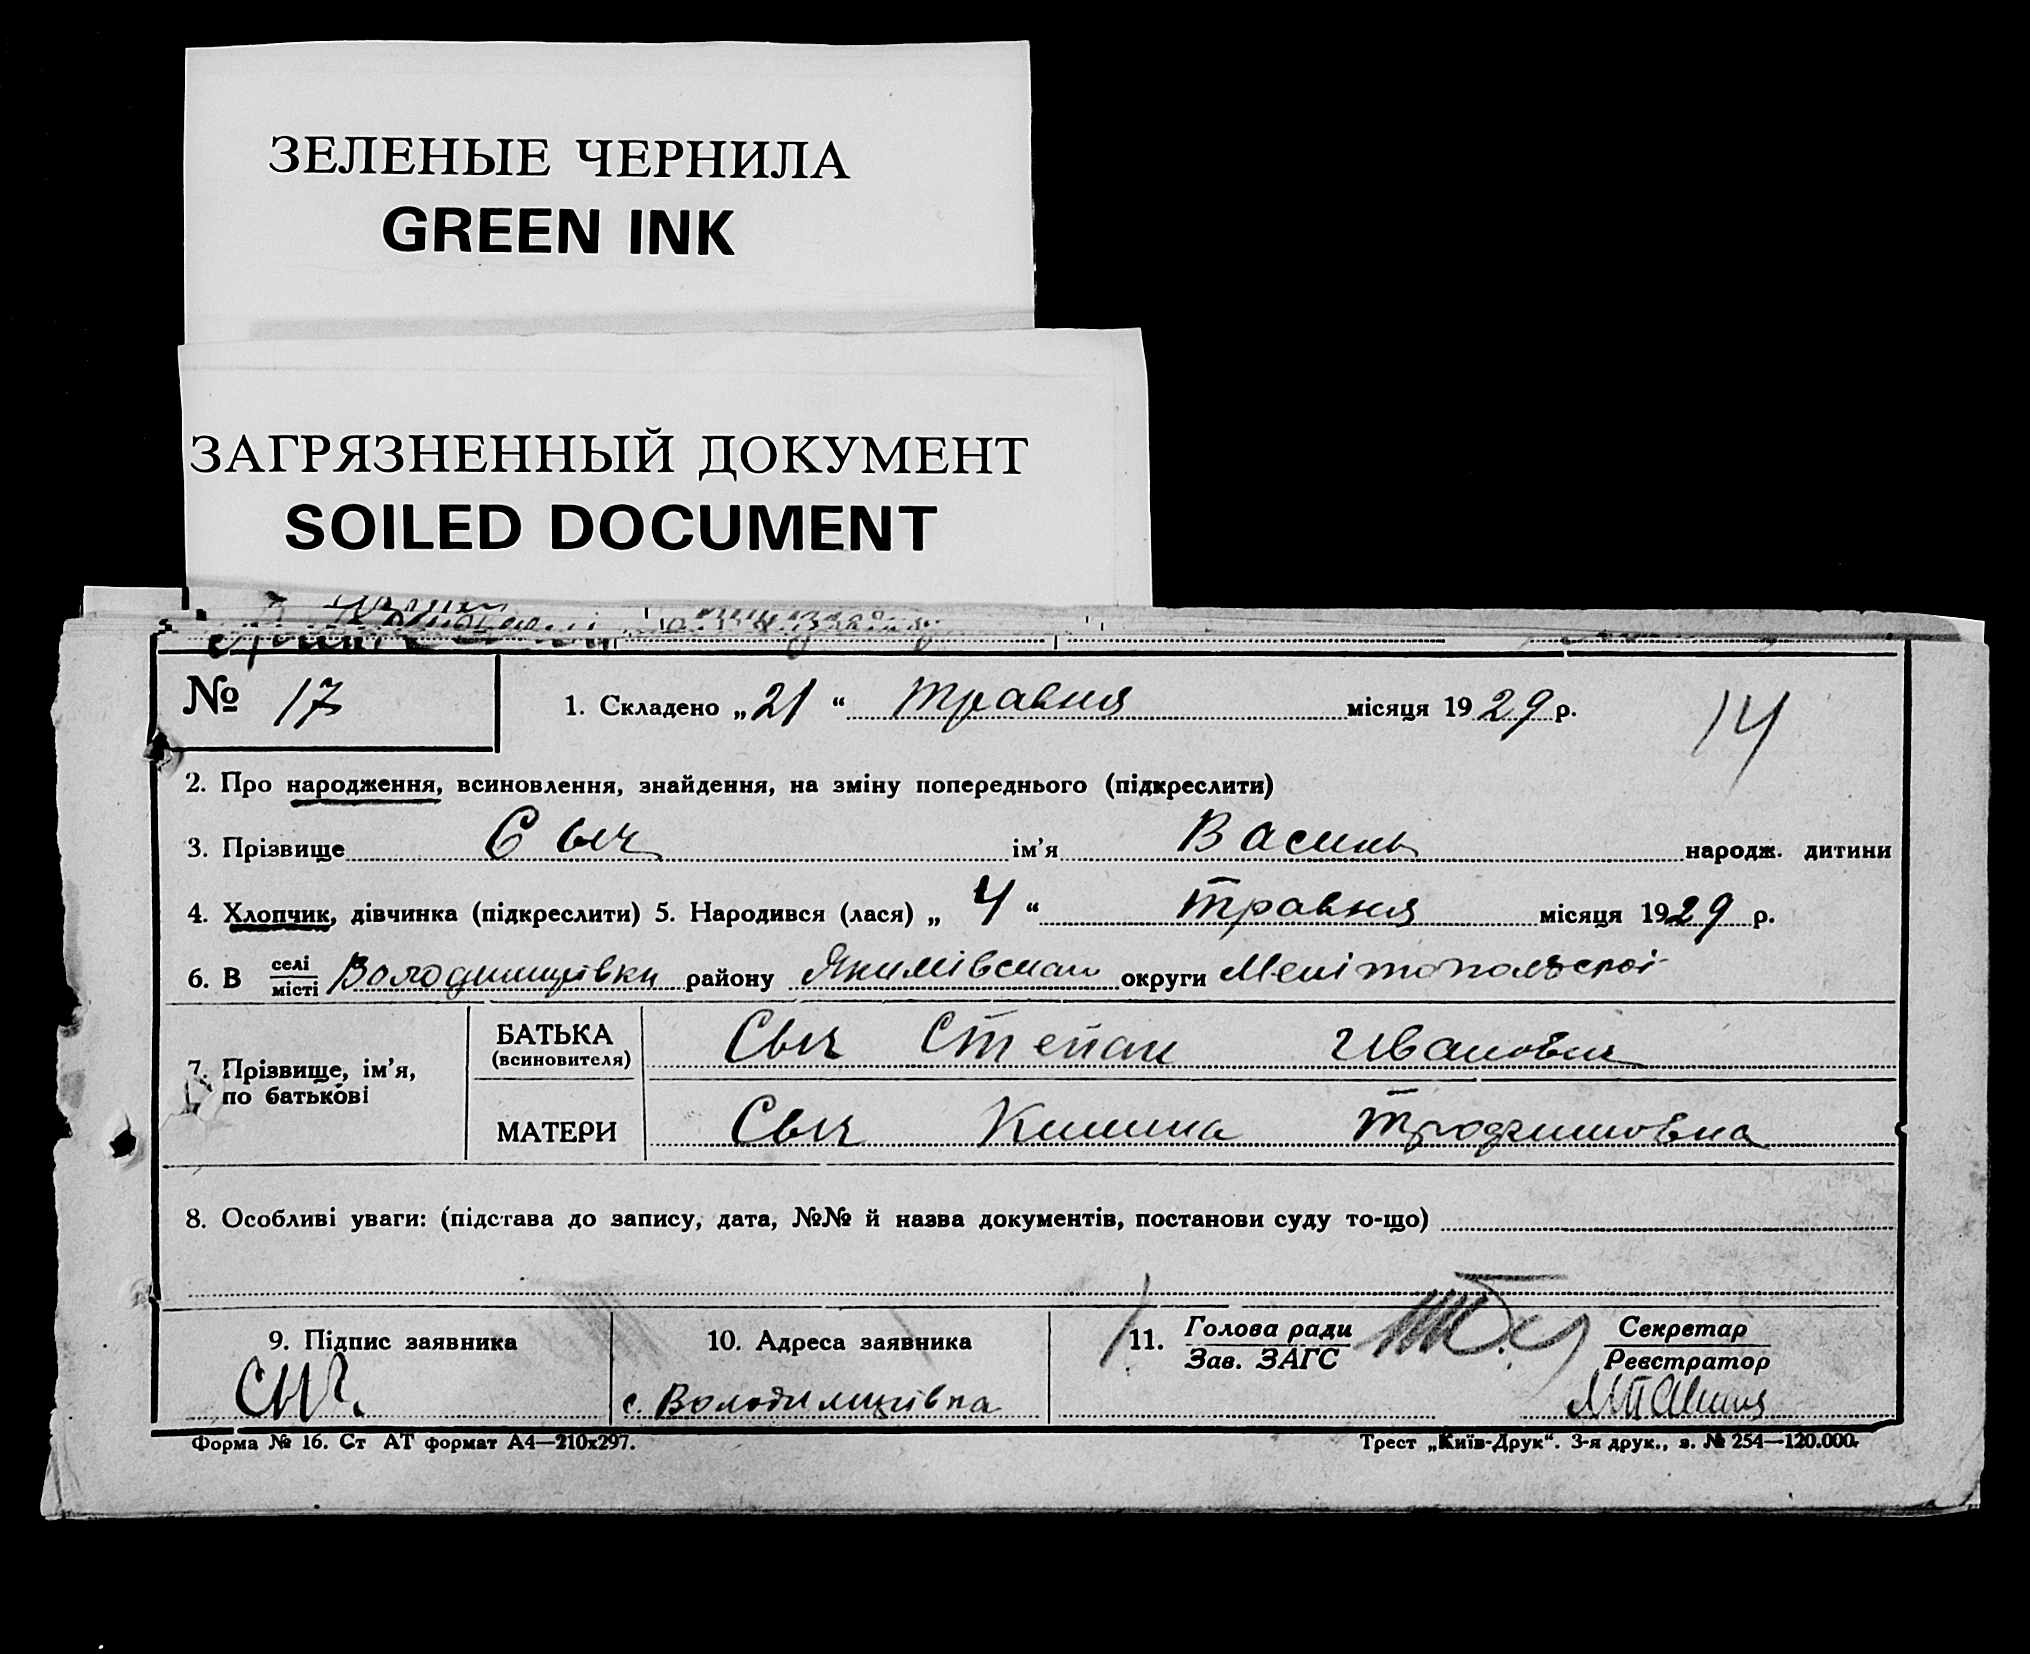 ЗЕЛЕНЫЕ ЧЕРНИЛА
GREEN INK
ЗАГРЯЗНЕННЫЙ ДОКУМЕНТ
SOILED DOCUMENT
№ 17
1. Складено „21“ травня місяця 1929 р.
14
2. Про народження, всиновлення, знайдення, на зміну попереднього (підкреслити)
3. Прізвище Сыч ім'я Василь народж. дитини
4. Хлопчик, дівчинка (підкреслити) 5. Народився (лася) „4“ травня місяця 1929 р.
6. В селі місті району округи
7. Прізвище, ім'я, по батькові
БАТЬКА (всиновителя) Сыч Степан Иванович
МАТЕРИ Сыч
8. Особливі уваги: (підстава до запису, дата, №№ й назва документів, постанови суду то-що)
9. Підпис заявника
Сыч.
10. Адреса заявника
с.
11. Голова ради Зав. ЗАГС
Секретар Реєстратор
Форма № 16. Ст АТ формат А4—210х297.
Трест „Київ-Друк“. 3-я друк., з. № 254—120.000.